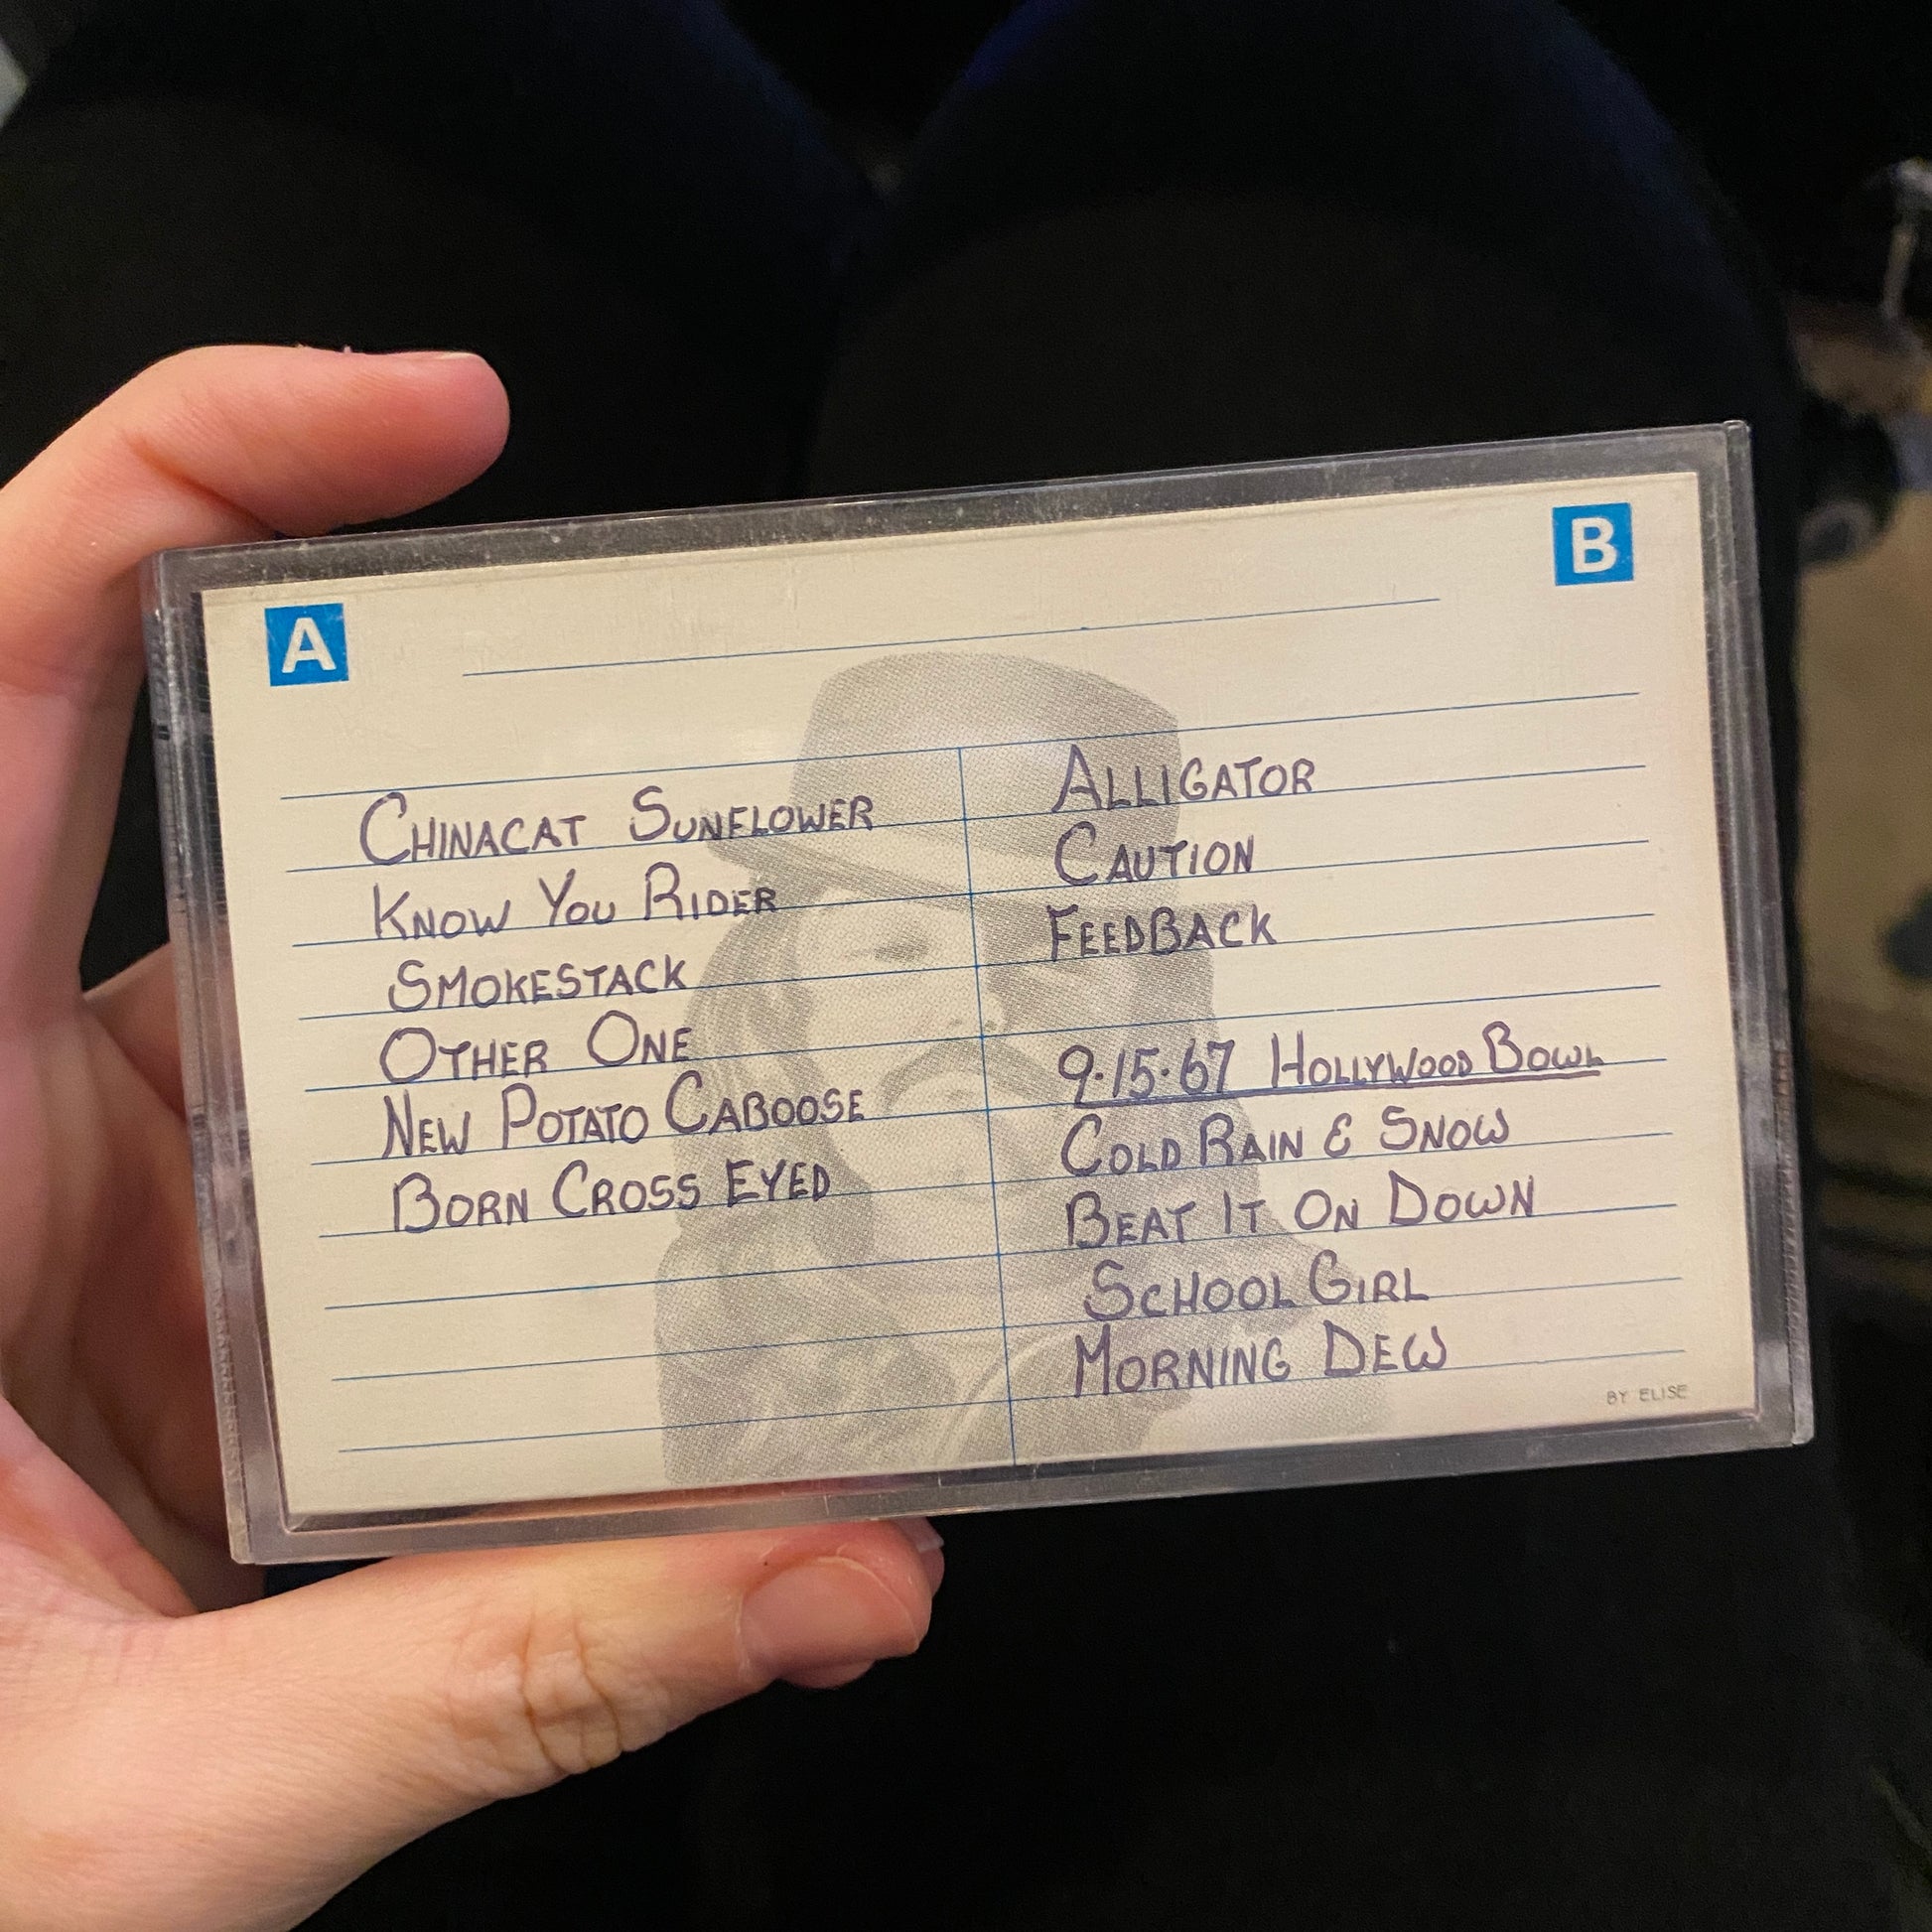 A
B
CHINACAT SUNFLOWER
KNOW YOU RIDER
SMOKESTACK
OTHER ONE
NEW POTATO CABOOSE
BORN CROSS EYED
ALLIGATOR
CAUTION
FEEDBACK
9·15·67 HOLLYWOOD BOWL
COLD RAIN & SNOW
BEAT IT ON DOWN
SCHOOL GIRL
MORNING DEW
BY ELISE